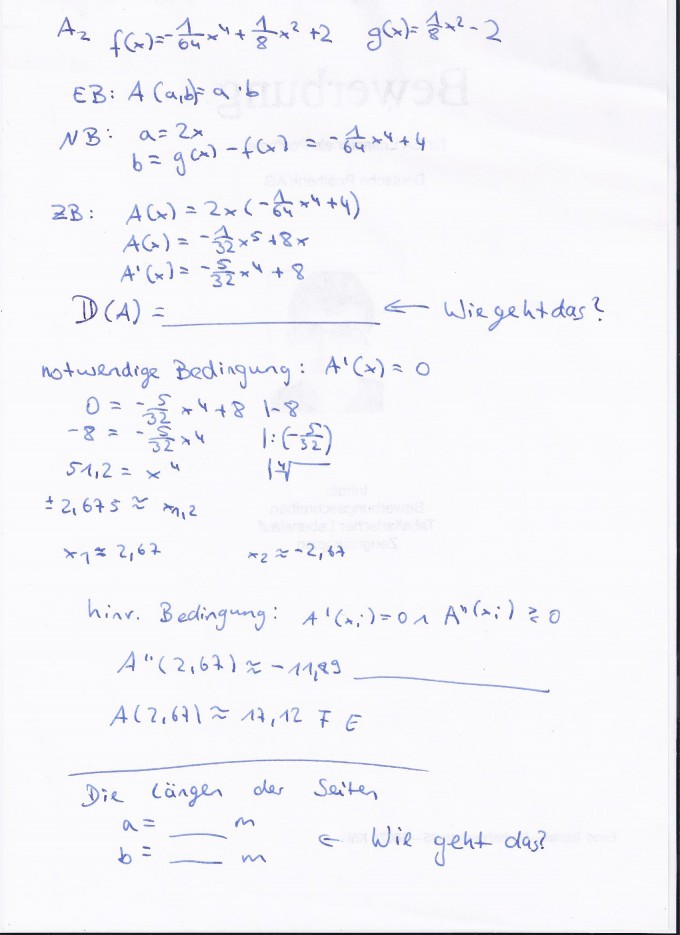 A₂ f(x)=-1/64x⁴+1/8x²+2 g(x)=1/8x²-2
EB: A(a,b)=a·b
NB: a=2x
b=g(x)-f(x) = -1/64x⁴+4
ZB: A(x) = 2x(-1/64x⁴+4)
A(x) = -1/32x⁵+8x
A'(x) = -5/32x⁴+8
D(A) = ________ ← Wie geht das?
notwendige Bedingung: A'(x) = 0
0 = -5/32x⁴+8 |-8
-8 = -5/32x⁴ |:(-5/32)
51,2 = x⁴ |⁴√
±2,675 ≈ x₁,₂
x₁≈2,67 x₂≈-2,67
hinr. Bedingung: A'(xᵢ)=0 ∧ A''(xᵢ) ≷ 0
A''(2,67) ≈ -11,89 ________
A(2,67) ≈ 17,12 FE
Die Längen der Seiten
a = ____ m
b = ____ m ← Wie geht das?
Bewerbung